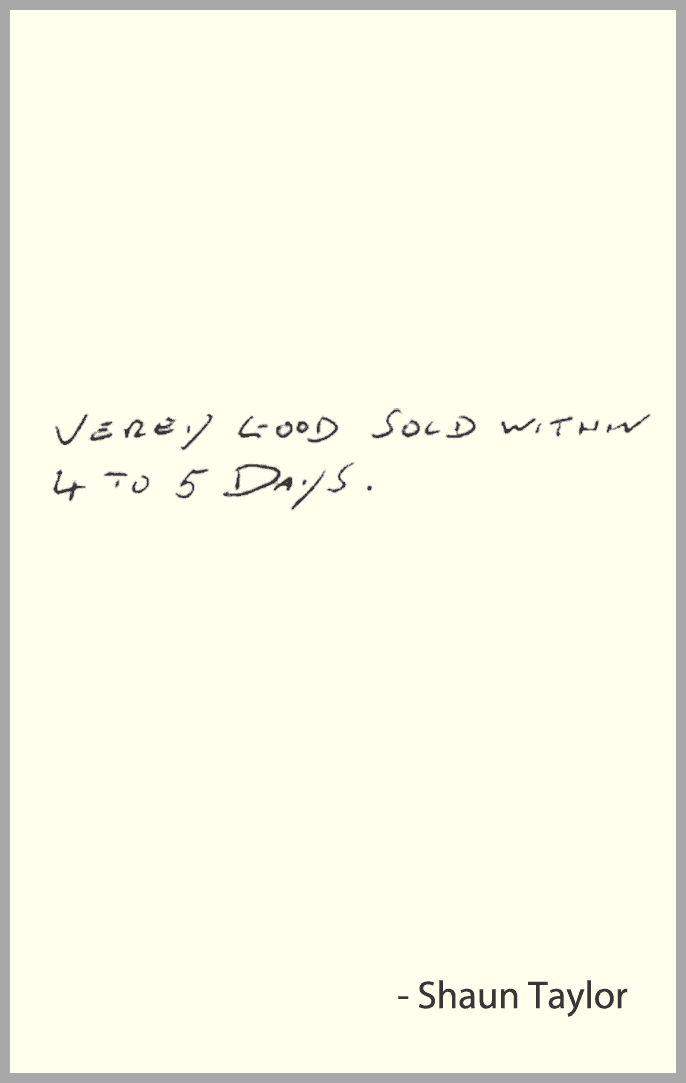 VEREY GOOD SOLD WITHIN
4 TO 5 DAYS.
- Shaun Taylor